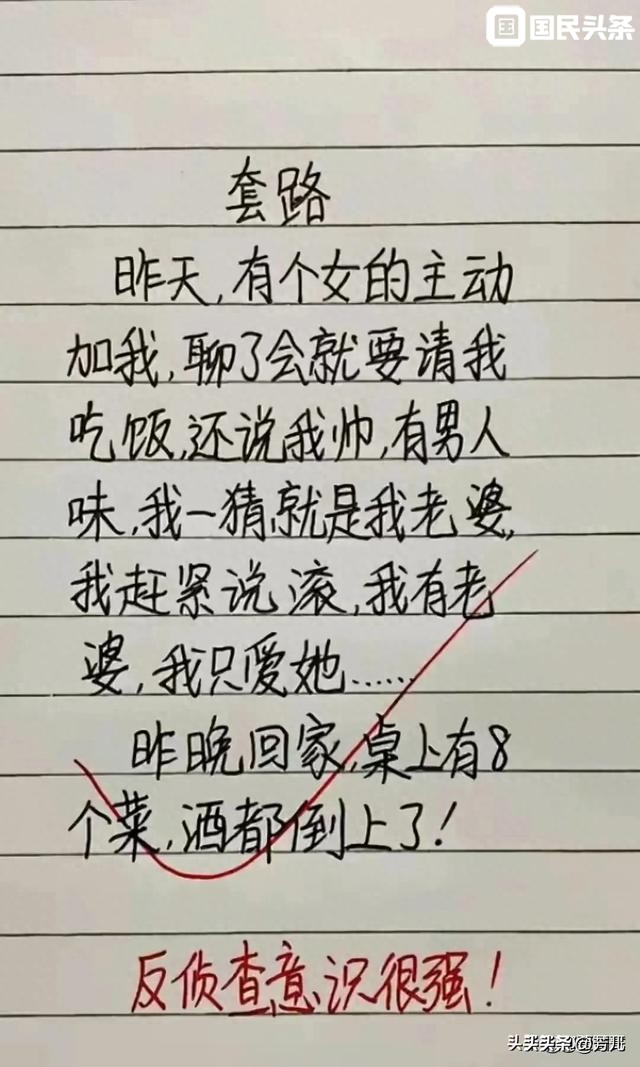 国民头条
套路
昨天,有个女的主动
加我,聊了会就要请我
吃饭,还说我帅,有男人
味,我一猜就是我老婆,
我赶紧说滚,我有老
婆,我只爱她……
昨晚回家,桌上有8
个菜,酒都倒上了!
反侦查意识很强!
头条